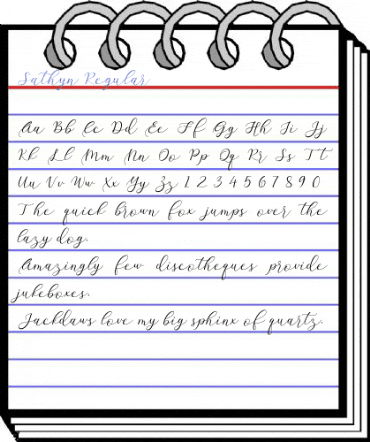 Sathyn Regular
Aa Bb Cc Dd Ee Ff Gg Hh Ii Jj
Kk Ll Mm Nn Oo Pp Qq Rr Ss Tt
Uu Vv Ww Xx Yy Zz 1 2 3 4 5 6 7 8 9 0
The quick brown fox jumps over the
lazy dog.
Amazingly few discotheques provide
jukeboxes.
Jackdaws love my big sphinx of quartz.